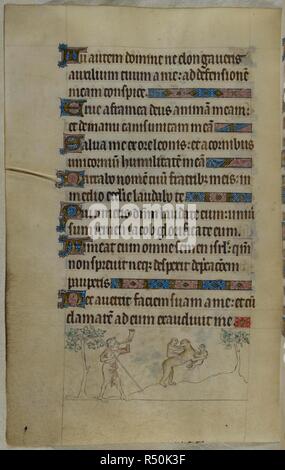 Tu autem domine ne elongaueris
auxilium tuum a me: ad defensionē
meam conspice.
Erue a framea deus animam meam:
et de manu canis unicam meā
Salua me ex ore leonis: et a cornibus
unicornium humilitatē meā
Narrabo nomen tuū fratribus meis: in
medio ecclie laudabo te
Qui timetis dn̄m laudate eum: uniū
sum semen iacob glorificate eum.
Timeat eum omne semen isrl: qm̄
non spreuit neqȝ despexit depcacōem
pauperis
Nec auertit faciem suam a me: et cū
clamarē ad eum exaudiuit me
alamy
alamy
Image ID: R50K3F
www.alamy.com